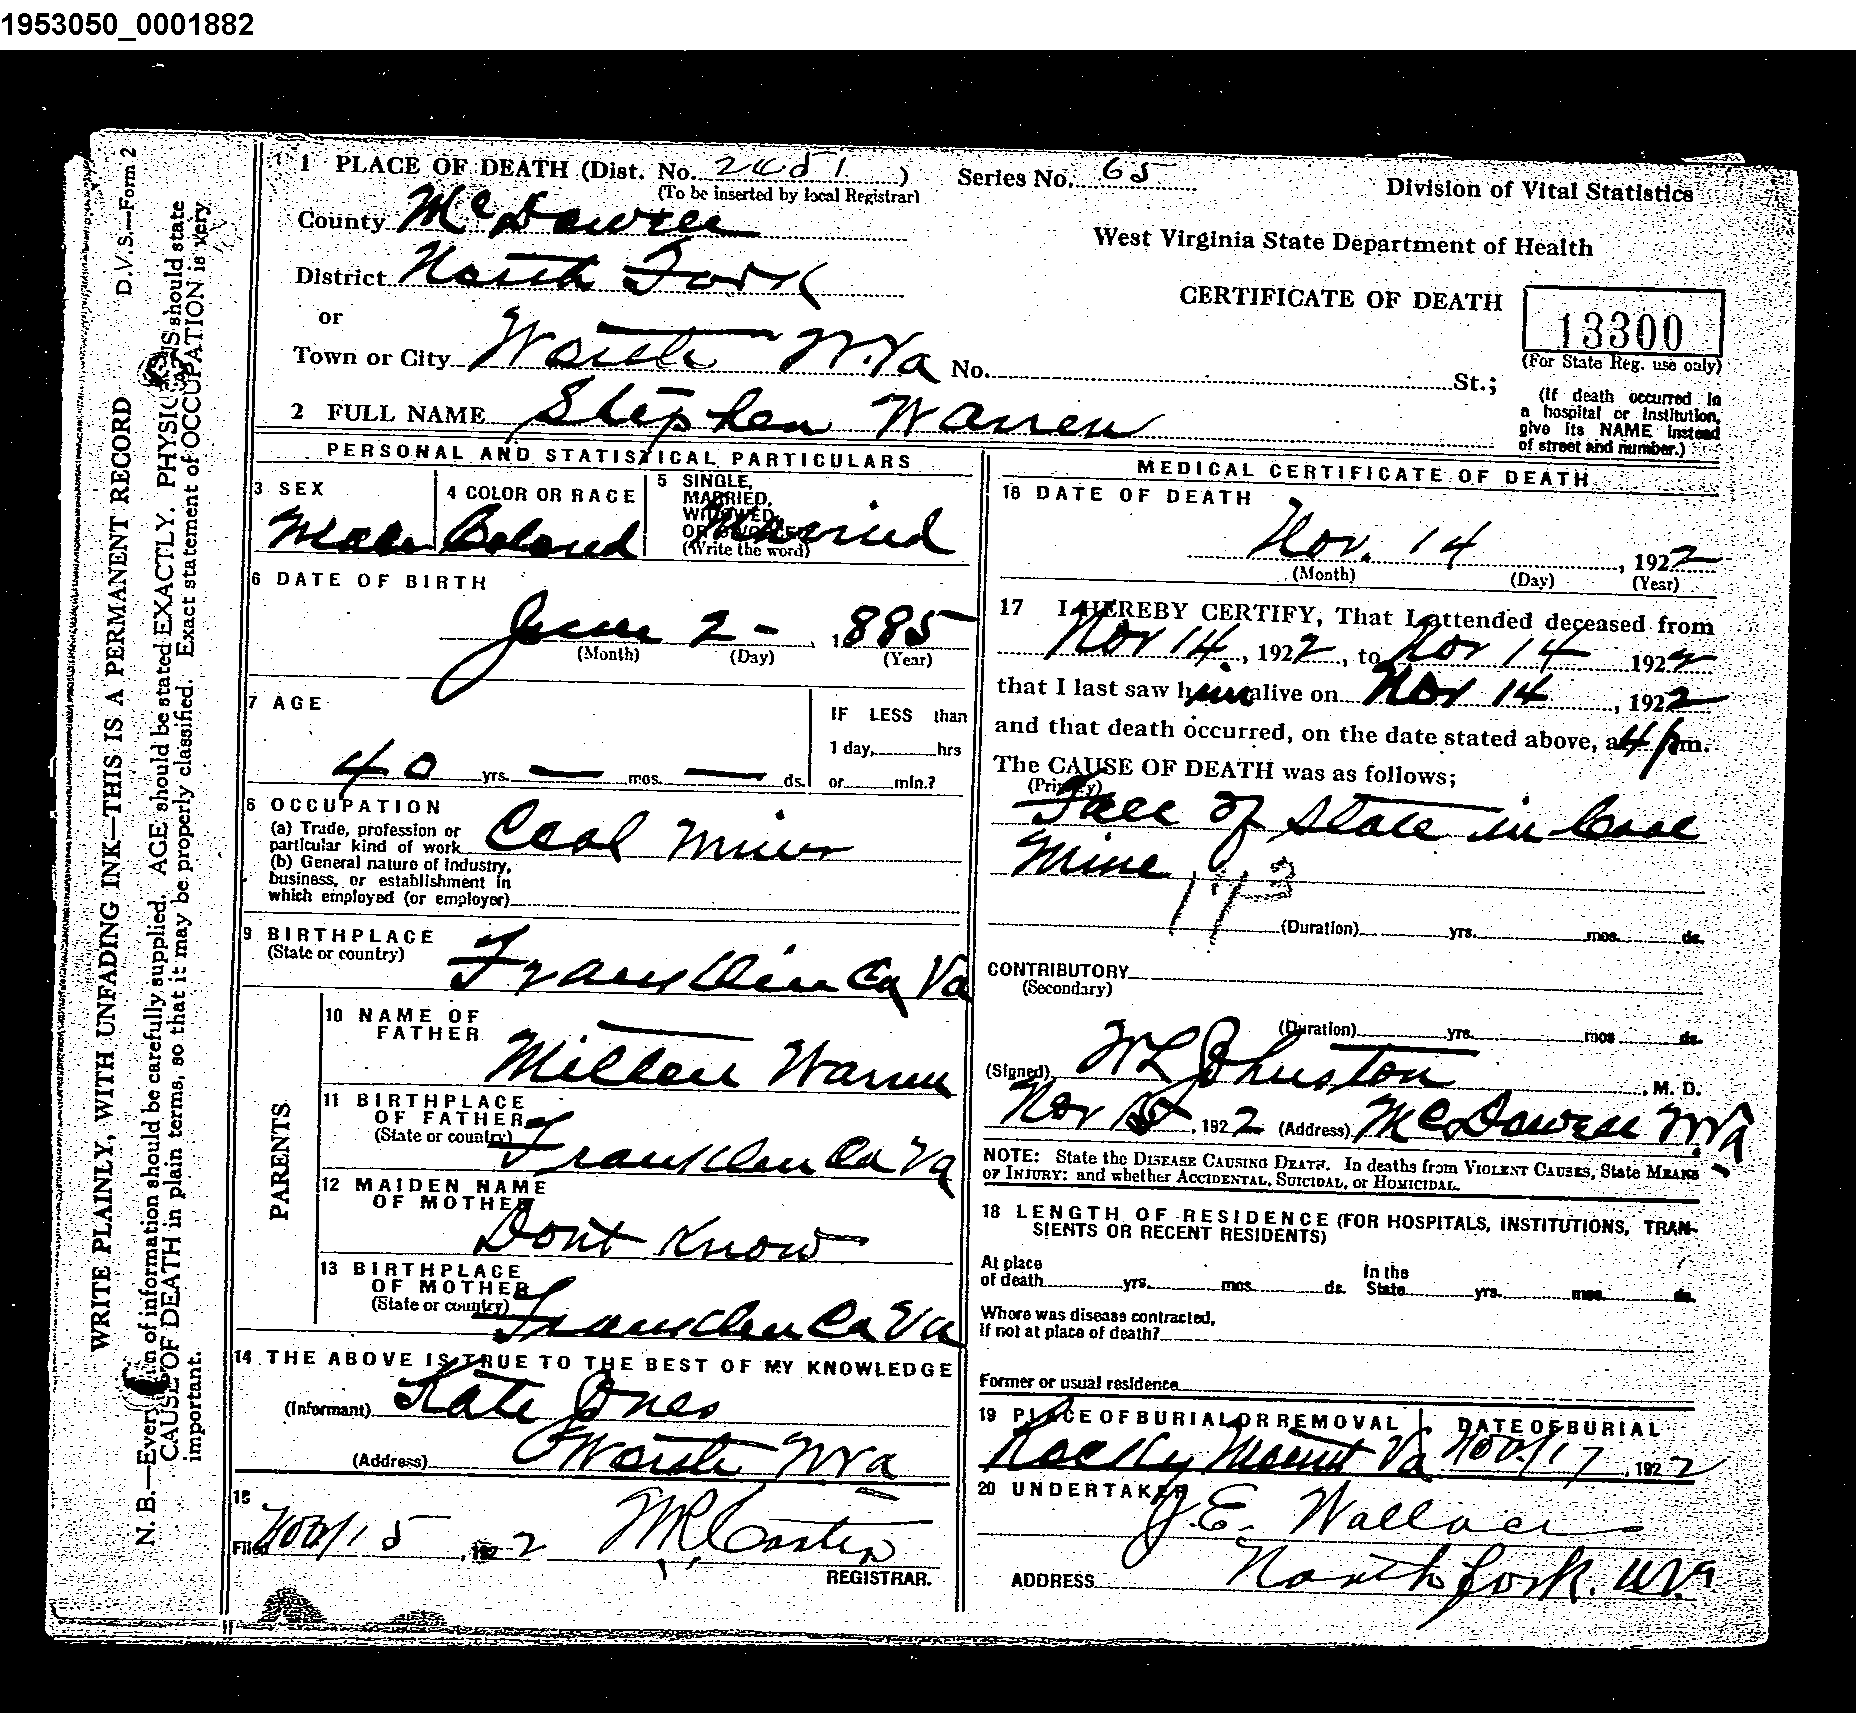 1953050_0001882
D.V.S.—Form 2
WRITE PLAINLY, WITH UNFADING INK—THIS IS A PERMANENT RECORD
N. B.—Every item of information should be carefully supplied. AGE should be stated EXACTLY. PHYSICIANS should state
CAUSE OF DEATH in plain terms, so that it may be properly classified. Exact statement of OCCUPATION is very
important.
1 PLACE OF DEATH (Dist. No. ) Series No. 65
(To be inserted by local Registrar)
Division of Vital Statistics
County McDowell
West Virginia State Department of Health
District North Fork
CERTIFICATE OF DEATH
13300
(For State Reg. use only)
or
Town or City Worth W.Va No. St.;
(If death occurred in
a hospital or institution,
give its NAME instead
of street and number.)
2 FULL NAME Stephen Warren
PERSONAL AND STATISTICAL PARTICULARS
3 SEX
Male
4 COLOR OR RACE
Colored
5 SINGLE,
MARRIED,
WIDOWED,
OR DIVORCED
(Write the word)
Married
6 DATE OF BIRTH
June 2 - , 1885
(Month) (Day) (Year)
7 AGE
40 yrs. — mos. — ds.
IF LESS than
1 day, hrs
or min.?
8 OCCUPATION
(a) Trade, profession or
particular kind of work Coal Miner
(b) General nature of industry,
business, or establishment in
which employed (or employer)
9 BIRTHPLACE
(State or country)
Franklin Co Va
PARENTS
10 NAME OF
FATHER
Milten Warren
11 BIRTHPLACE
OF FATHER
(State or country)
Franklin Co Va
12 MAIDEN NAME
OF MOTHER
Dont Know
13 BIRTHPLACE
OF MOTHER
(State or country)
Franklin Co Va
14 THE ABOVE IS TRUE TO THE BEST OF MY KNOWLEDGE
(Informant) Kate Jones
(Address) Worth W Va
15
Filed Nov/15 , 1922
REGISTRAR.
MEDICAL CERTIFICATE OF DEATH
16 DATE OF DEATH
Nov. 14 , 1922
(Month) (Day) (Year)
17 I HEREBY CERTIFY, That I attended deceased from
Nov 14. , 1922 , to Nov 14 1922
that I last saw him alive on Nov 14 , 1922
and that death occurred, on the date stated above, at 4 p m.
The CAUSE OF DEATH was as follows;
(Primary)
Fall of slate in Coal
Mine
173
(Duration) yrs. mos. ds.
CONTRIBUTORY
(Secondary)
(Duration) yrs. mos ds.
(Signed) W L Johnston , M. D.
Nov 15 , 1922 (Address) McDowell W Va
NOTE: State the DISEASE CAUSING DEATH. In deaths from VIOLENT CAUSES, State MEANS
OF INJURY; and whether ACCIDENTAL, SUICIDAL, or HOMICIDAL.
18 LENGTH OF RESIDENCE (FOR HOSPITALS, INSTITUTIONS, TRAN-
SIENTS OR RECENT RESIDENTS)
At place
of death yrs. mos. ds.
In the
State yrs. mos. ds.
Where was disease contracted,
if not at place of death?
Former or usual residence
19 PLACE OF BURIAL OR REMOVAL
Rocky Mount Va
DATE OF BURIAL
Nov/17 , 1922
20 UNDERTAKER
J. E. Wallace
ADDRESS North fork. W.Va